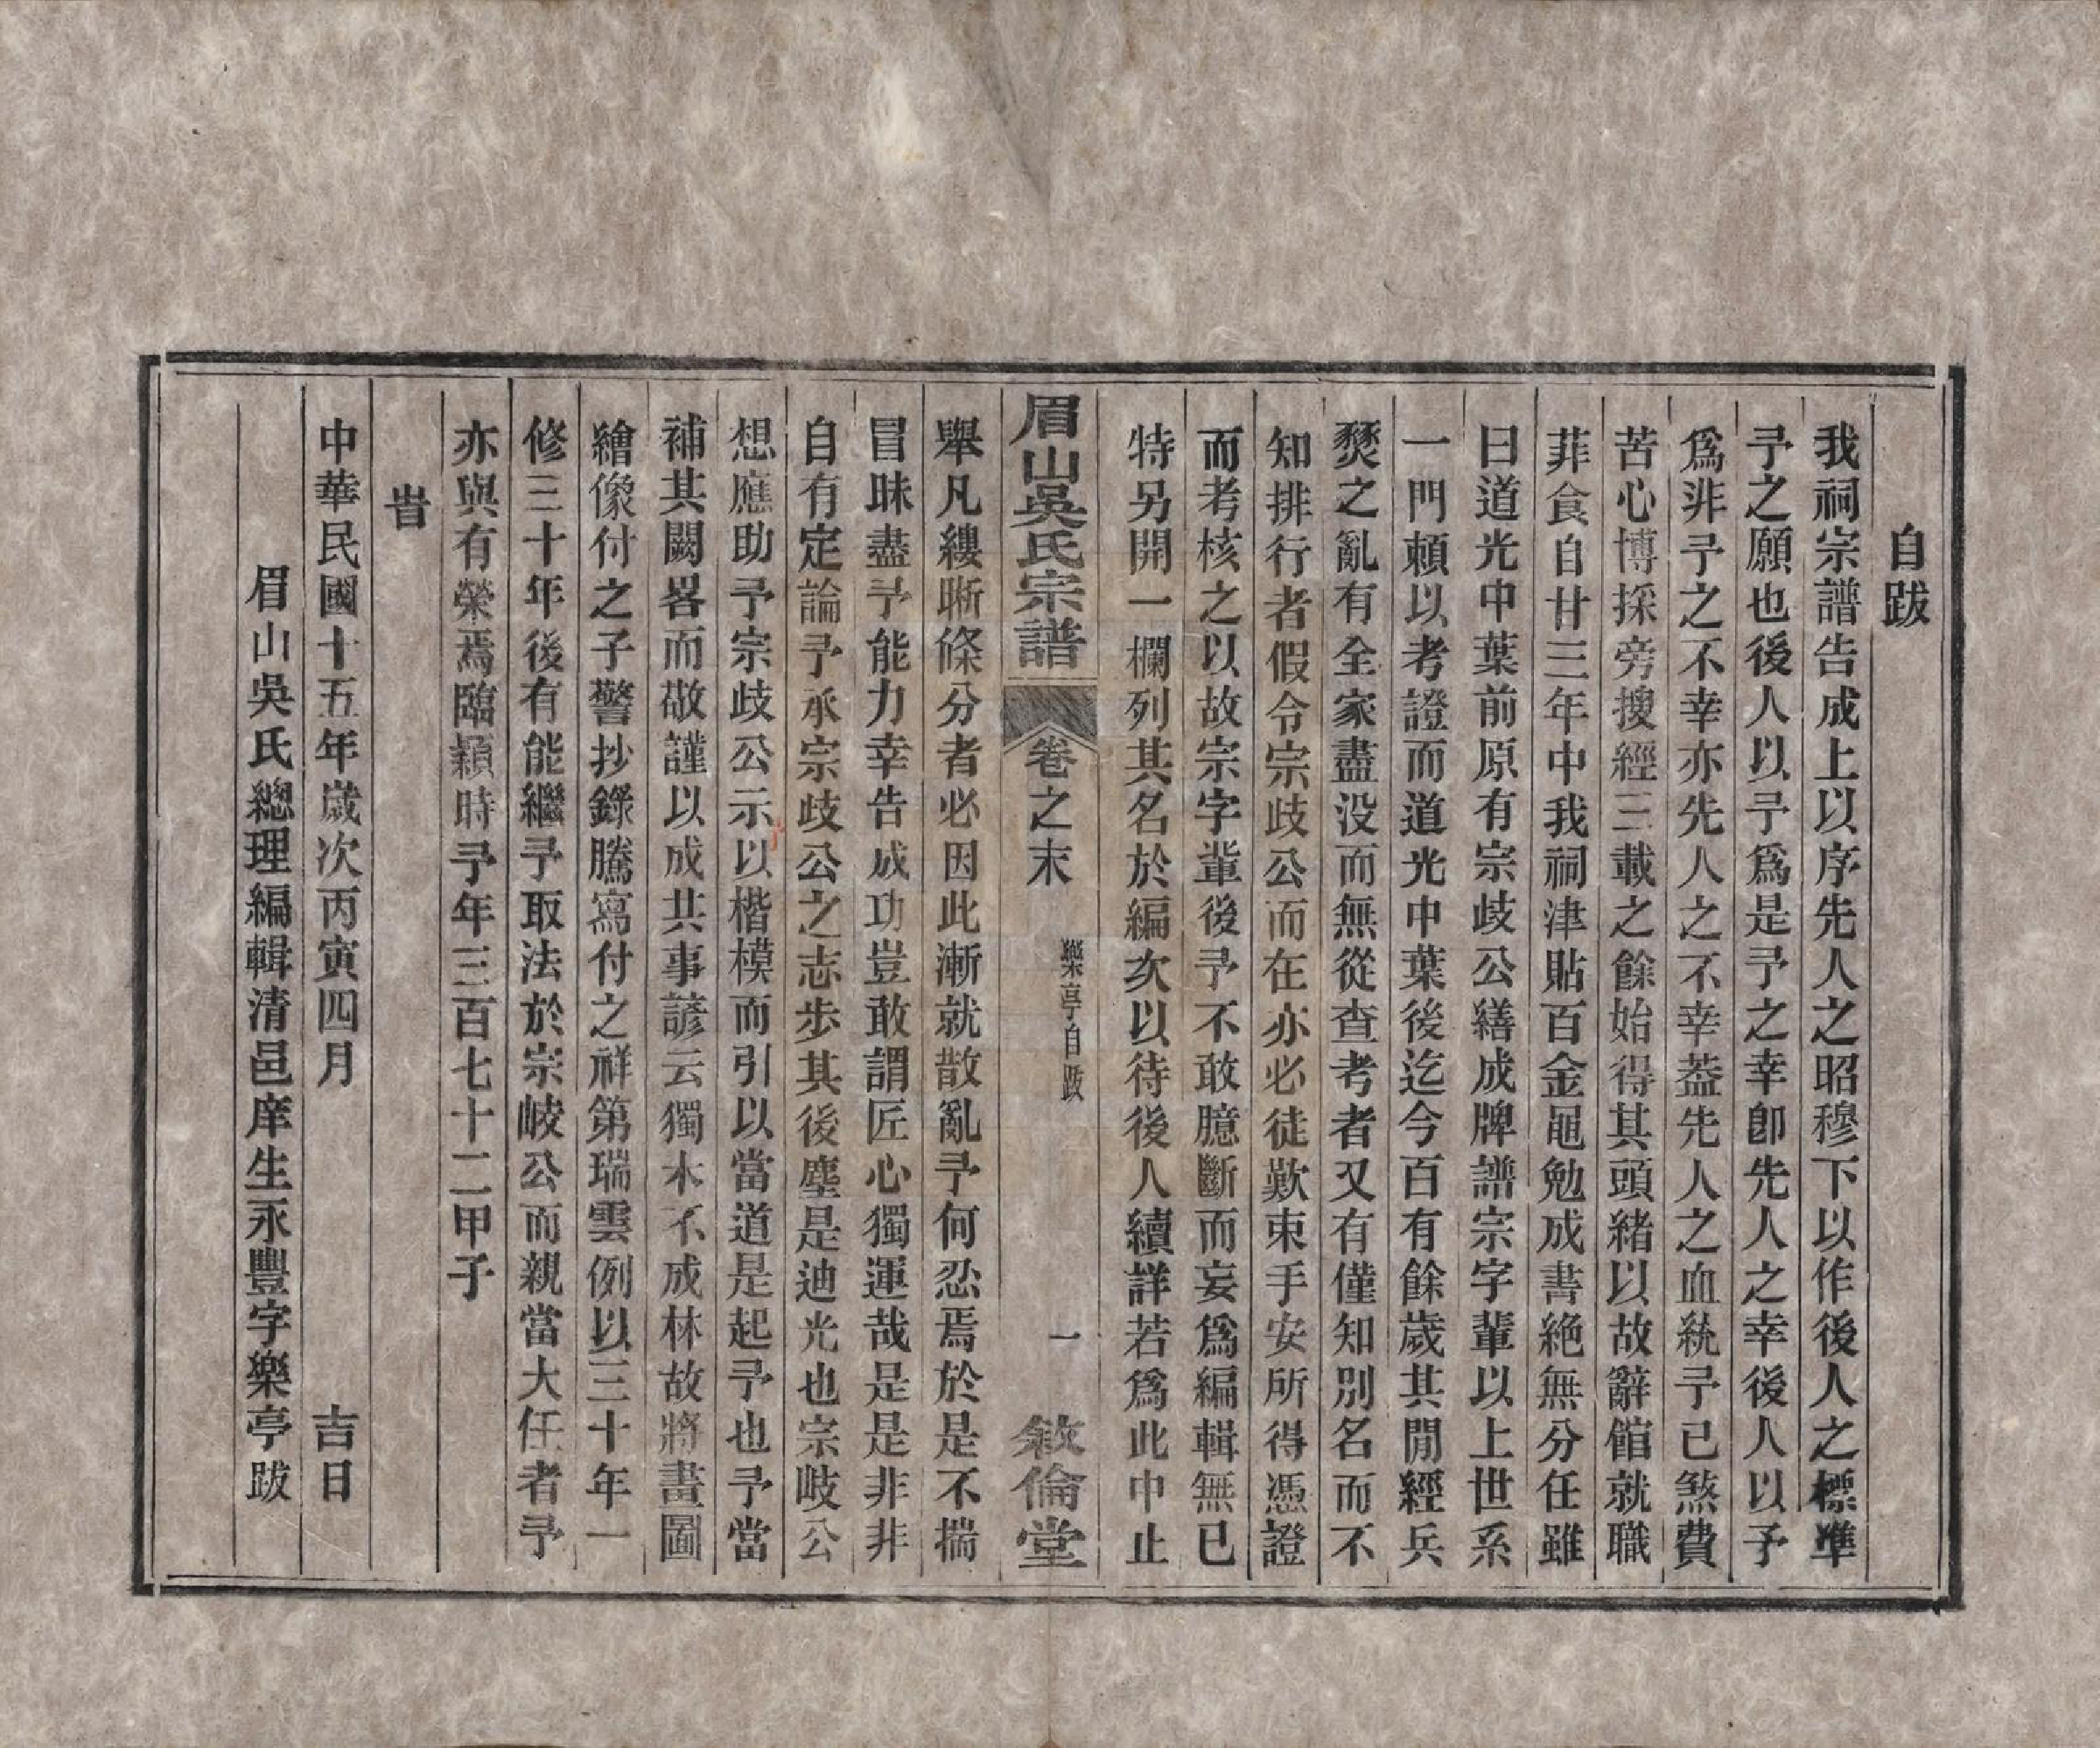 自跋
我祠宗譜告成上以序先人之昭穆下以作後人之標準
予之願也後人以予爲是予之幸卽先人之幸後人以予
爲非予之不幸亦先人之不幸葢先人之血統予已煞費
苦心博採旁搜經三載之餘始得其頭緒以故辭館就職
菲食自甘三年中我祠津貼百金黽勉成書絶無分任雖
曰道光中葉前原有宗歧公繕成牌譜宗字輩以上世系
一門賴以考證而道光中葉後迄今百有餘歲其閒經兵
燹之亂有全家盡没而無從查考者又有僅知別名而不
知排行者假令宗歧公而在亦必徒歎束手安所得憑證
而考核之以故宗字輩後予不敢臆斷而妄爲編輯無已
特另開一欄列其名於編次以待後人續詳若爲此中止
眉山吳氏宗譜 卷之末 樂亭自跋 一 敘倫堂
舉凡縷晰條分者必因此漸就散亂予何忍焉於是不揣
冒昧盡予能力幸告成功豈敢謂匠心獨運哉是是非非
自有定論予承宗歧公之志步其後塵是迪光也宗岐公
想應助予宗歧公示以楷模而引以當道是起予也予當
補其闕畧而敬謹以成其事諺云獨木不成林故將畫圖
繪像付之子警抄錄騰寫付之祥第瑞雲例以三十年一
修三十年後有能繼予取法於宗岐公而親當大任者予
亦與有榮焉臨穎時予年三百七十二甲子
旹
中華民國十五年歲次丙寅四月 吉日
眉山吳氏總理編輯清邑庠生永豐字樂亭跋